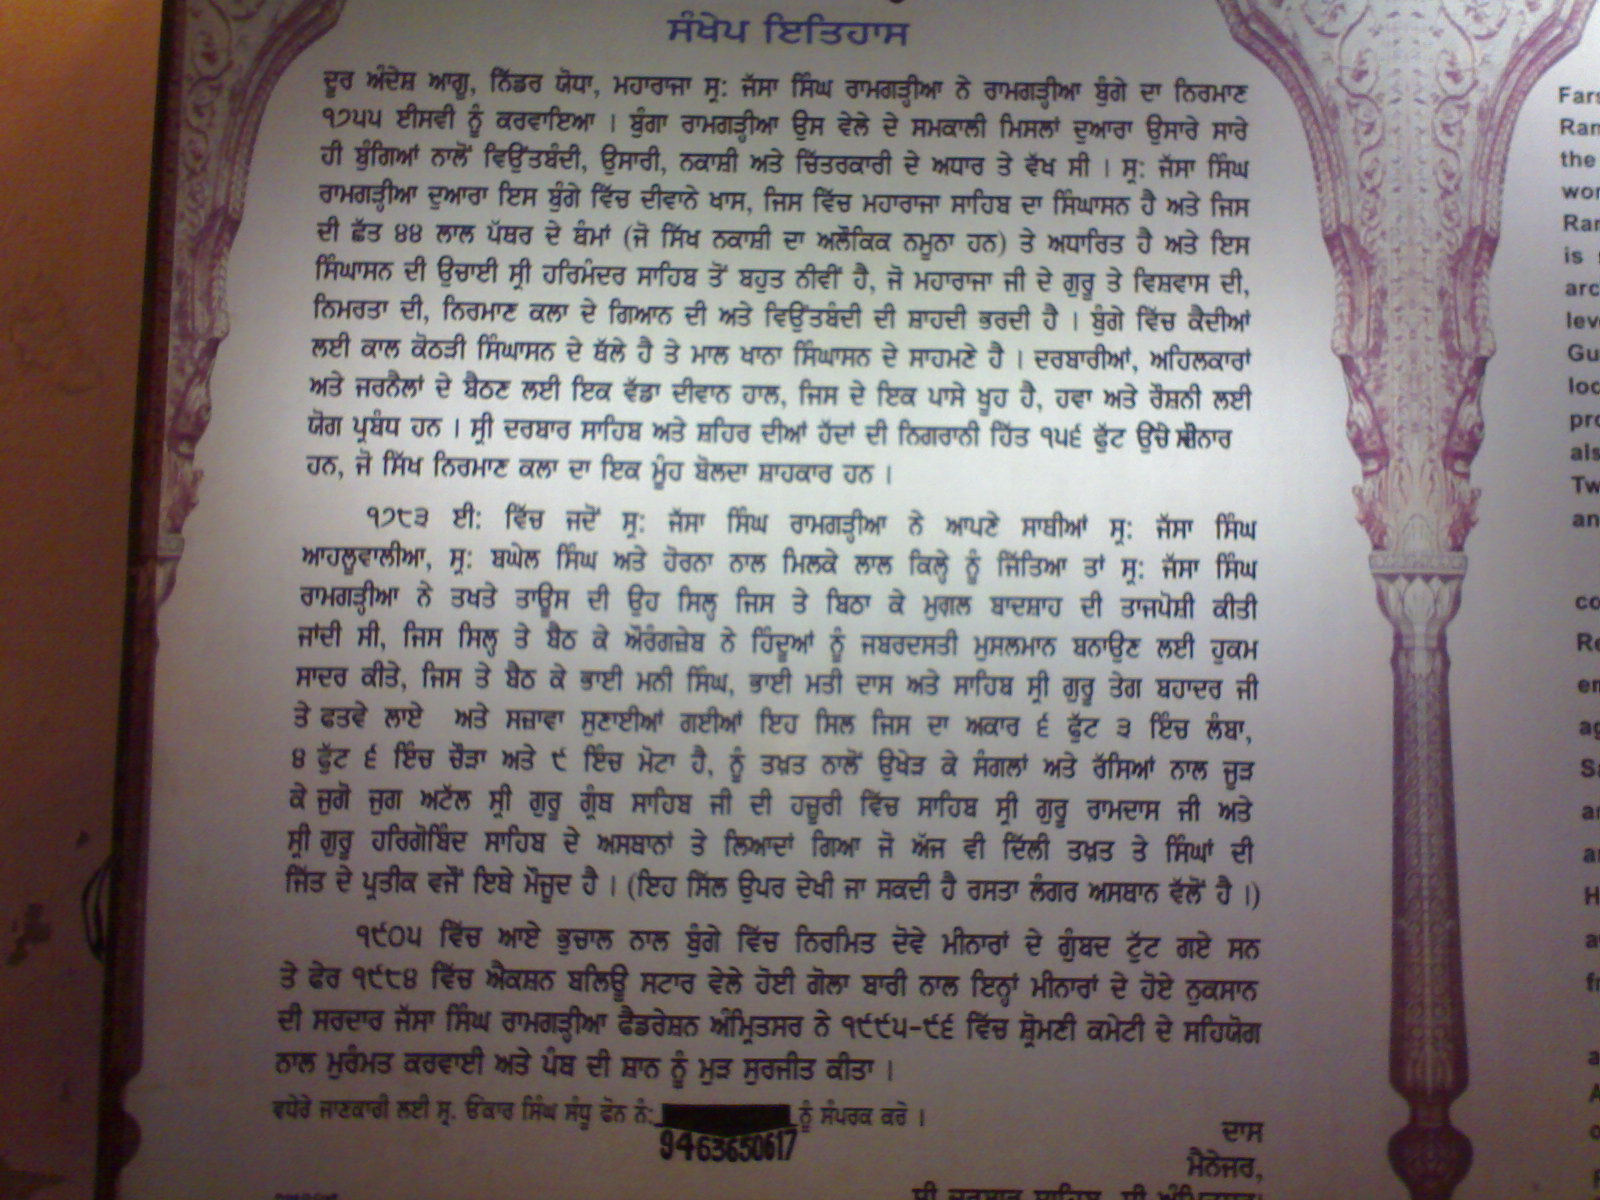 ਸੰਖੇਪ ਇਤਿਹਾਸ
ਦੂਰ ਅੰਦੇਸ਼ ਆਗੂ, ਨਿੱਡਰ ਯੋਧਾ, ਮਹਾਰਾਜਾ ਸ੍ਰ: ਜੱਸਾ ਸਿੰਘ ਰਾਮਗੜ੍ਹੀਆ ਨੇ ਰਾਮਗੜ੍ਹੀਆ ਬੁੰਗੇ ਦਾ ਨਿਰਮਾਣ
੧੭੫੫ ਈਸਵੀ ਨੂੰ ਕਰਵਾਇਆ । ਬੁੰਗਾ ਰਾਮਗੜ੍ਹੀਆ ਉਸ ਵੇਲੇ ਦੇ ਸਮਕਾਲੀ ਮਿਸਲਾਂ ਦੁਆਰਾ ਉਸਾਰੇ ਸਾਰੇ
ਹੀ ਬੁੰਗਿਆਂ ਨਾਲੋਂ ਵਿਉਂਤਬੰਦੀ, ਉਸਾਰੀ, ਨਕਾਸ਼ੀ ਅਤੇ ਚਿੱਤਰਕਾਰੀ ਦੇ ਅਧਾਰ ਤੇ ਵੱਖ ਸੀ । ਸ੍ਰ: ਜੱਸਾ ਸਿੰਘ
ਰਾਮਗੜ੍ਹੀਆ ਦੁਆਰਾ ਇਸ ਬੁੰਗੇ ਵਿੱਚ ਦੀਵਾਨੇ ਖਾਸ, ਜਿਸ ਵਿੱਚ ਮਹਾਰਾਜਾ ਸਾਹਿਬ ਦਾ ਸਿੰਘਾਸਨ ਹੈ ਅਤੇ ਜਿਸ
ਦੀ ਛੱਤ ੪੪ ਲਾਲ ਪੱਥਰ ਦੇ ਥੰਮਾਂ (ਜੋ ਸਿੱਖ ਨਕਾਸ਼ੀ ਦਾ ਅਲੌਕਿਕ ਨਮੂਨਾ ਹਨ) ਤੇ ਅਧਾਰਿਤ ਹੈ ਅਤੇ ਇਸ
ਸਿੰਘਾਸਨ ਦੀ ਉਚਾਈ ਸ੍ਰੀ ਹਰਿਮੰਦਰ ਸਾਹਿਬ ਤੋਂ ਬਹੁਤ ਨੀਵੀਂ ਹੈ, ਜੋ ਮਹਾਰਾਜਾ ਜੀ ਦੇ ਗੁਰੂ ਤੇ ਵਿਸ਼ਵਾਸ ਦੀ,
ਨਿਮਰਤਾ ਦੀ, ਨਿਰਮਾਣ ਕਲਾ ਦੇ ਗਿਆਨ ਦੀ ਅਤੇ ਵਿਉਂਤਬੰਦੀ ਦੀ ਸ਼ਾਹਦੀ ਭਰਦੀ ਹੈ । ਬੁੰਗੇ ਵਿੱਚ ਕੈਦੀਆਂ
ਲਈ ਕਾਲ ਕੋਠੜੀ ਸਿੰਘਾਸਨ ਦੇ ਥੱਲੇ ਹੈ ਤੇ ਮਾਲ ਖਾਨਾ ਸਿੰਘਾਸਨ ਦੇ ਸਾਹਮਣੇ ਹੈ । ਦਰਬਾਰੀਆਂ, ਅਹਿਲਕਾਰਾਂ
ਅਤੇ ਜਰਨੈਲਾਂ ਦੇ ਬੈਠਣ ਲਈ ਇਕ ਵੱਡਾ ਦੀਵਾਨ ਹਾਲ, ਜਿਸ ਦੇ ਇਕ ਪਾਸੇ ਖੂਹ ਹੈ, ਹਵਾ ਅਤੇ ਰੌਸ਼ਨੀ ਲਈ
ਯੋਗ ਪ੍ਰਬੰਧ ਹਨ । ਸ੍ਰੀ ਦਰਬਾਰ ਸਾਹਿਬ ਅਤੇ ਸ਼ਹਿਰ ਦੀਆਂ ਹੱਦਾਂ ਦੀ ਨਿਗਰਾਨੀ ਹਿੱਤ ੧੫੬ ਫੁੱਟ ਉਚੇ ਮੀਨਾਰ
ਹਨ, ਜੋ ਸਿੱਖ ਨਿਰਮਾਣ ਕਲਾ ਦਾ ਇਕ ਮੂੰਹ ਬੋਲਦਾ ਸ਼ਾਹਕਾਰ ਹਨ ।
੧੭੮੩ ਈ: ਵਿੱਚ ਜਦੋਂ ਸ੍ਰ: ਜੱਸਾ ਸਿੰਘ ਰਾਮਗੜ੍ਹੀਆ ਨੇ ਆਪਣੇ ਸਾਥੀਆਂ ਸ੍ਰ: ਜੱਸਾ ਸਿੰਘ
ਆਹਲੂਵਾਲੀਆ, ਸ੍ਰ: ਬਘੇਲ ਸਿੰਘ ਅਤੇ ਹੋਰਨਾ ਨਾਲ ਮਿਲਕੇ ਲਾਲ ਕਿਲ੍ਹੇ ਨੂੰ ਜਿੱਤਿਆ ਤਾਂ ਸ੍ਰ: ਜੱਸਾ ਸਿੰਘ
ਰਾਮਗੜ੍ਹੀਆ ਨੇ ਤਖਤੇ ਤਾਊਸ ਦੀ ਉਹ ਸਿਲ੍ਹ ਜਿਸ ਤੇ ਬਿਠਾ ਕੇ ਮੁਗ਼ਲ ਬਾਦਸ਼ਾਹ ਦੀ ਤਾਜਪੋਸ਼ੀ ਕੀਤੀ
ਜਾਂਦੀ ਸੀ, ਜਿਸ ਸਿਲ੍ਹ ਤੇ ਬੈਠ ਕੇ ਔਰੰਗਜ਼ੇਬ ਨੇ ਹਿੰਦੂਆਂ ਨੂੰ ਜਬਰਦਸਤੀ ਮੁਸਲਮਾਨ ਬਨਾਉਣ ਲਈ ਹੁਕਮ
ਸਾਦਰ ਕੀਤੇ, ਜਿਸ ਤੇ ਬੈਠ ਕੇ ਭਾਈ ਮਨੀ ਸਿੰਘ, ਭਾਈ ਮਤੀ ਦਾਸ ਅਤੇ ਸਾਹਿਬ ਸ੍ਰੀ ਗੁਰੂ ਤੇਗ ਬਹਾਦਰ ਜੀ
ਤੇ ਫਤਵੇ ਲਾਏ ਅਤੇ ਸਜ਼ਾਵਾ ਸੁਣਾਈਆਂ ਗਈਆਂ ਇਹ ਸਿਲ ਜਿਸ ਦਾ ਅਕਾਰ ੬ ਫੁੱਟ ੩ ਇੰਚ ਲੰਬਾ,
੪ ਫੁੱਟ ੬ ਇੰਚ ਚੌੜਾ ਅਤੇ ੯ ਇੰਚ ਮੋਟਾ ਹੈ, ਨੂੰ ਤਖ਼ਤ ਨਾਲੋਂ ਉਖੇੜ ਕੇ ਸੰਗਲਾਂ ਅਤੇ ਰੱਸਿਆਂ ਨਾਲ ਜੂੜ
ਕੇ ਜੁਗੋ ਜੁਗ ਅਟੱਲ ਸ੍ਰੀ ਗੁਰੂ ਗ੍ਰੰਥ ਸਾਹਿਬ ਜੀ ਦੀ ਹਜ਼ੂਰੀ ਵਿੱਚ ਸਾਹਿਬ ਸ੍ਰੀ ਗੁਰੂ ਰਾਮਦਾਸ ਜੀ ਅਤੇ
ਸ੍ਰੀ ਗੁਰੂ ਹਰਿਗੋਬਿੰਦ ਸਾਹਿਬ ਦੇ ਅਸਥਾਨਾਂ ਤੇ ਲਿਆਦਾਂ ਗਿਆ ਜੋ ਅੱਜ ਵੀ ਦਿੱਲੀ ਤਖ਼ਤ ਤੇ ਸਿੰਘਾਂ ਦੀ
ਜਿੱਤ ਦੇ ਪ੍ਰਤੀਕ ਵਜੋਂ ਇਥੇ ਮੌਜੂਦ ਹੈ । (ਇਹ ਸਿੱਲ ਉਪਰ ਦੇਖੀ ਜਾ ਸਕਦੀ ਹੈ ਰਸਤਾ ਲੰਗਰ ਅਸਥਾਨ ਵੱਲੋਂ ਹੈ ।)
੧੯੦੫ ਵਿੱਚ ਆਏ ਭੁਚਾਲ ਨਾਲ ਬੁੰਗੇ ਵਿੱਚ ਨਿਰਮਿਤ ਦੋਵੇ ਮੀਨਾਰਾਂ ਦੇ ਗੁੰਬਦ ਟੁੱਟ ਗਏ ਸਨ
ਤੇ ਫੇਰ ੧੯੮੪ ਵਿੱਚ ਐਕਸ਼ਨ ਬਲਿਊ ਸਟਾਰ ਵੇਲੇ ਹੋਈ ਗੋਲਾ ਬਾਰੀ ਨਾਲ ਇਨ੍ਹਾਂ ਮੀਨਾਰਾਂ ਦੇ ਹੋਏ ਨੁਕਸਾਨ
ਦੀ ਸਰਦਾਰ ਜੱਸਾ ਸਿੰਘ ਰਾਮਗੜ੍ਹੀਆ ਫੈਡਰੇਸ਼ਨ ਅੰਮ੍ਰਿਤਸਰ ਨੇ ੧੯੯੫-੯੬ ਵਿੱਚ ਸ਼੍ਰੋਮਣੀ ਕਮੇਟੀ ਦੇ ਸਹਿਯੋਗ
ਨਾਲ ਮੁਰੰਮਤ ਕਰਵਾਈ ਅਤੇ ਪੰਥ ਦੀ ਸ਼ਾਨ ਨੂੰ ਮੁੜ ਸੁਰਜੀਤ ਕੀਤਾ ।
ਵਧੇਰੇ ਜਾਣਕਾਰੀ ਲਈ ਸ੍ਰ. ਓਂਕਾਰ ਸਿੰਘ ਸੰਧੂ ਫੋਨ ਨੰ: ਨੂੰ ਸੰਪਰਕ ਕਰੋ ।
9463650617
ਦਾਸ
ਮੈਨੇਜਰ,
ਸ੍ਰੀ ਦਰਬਾਰ ਸਾਹਿਬ, ਸ੍ਰੀ ਅੰਮ੍ਰਿਤਸਰ।
the
is